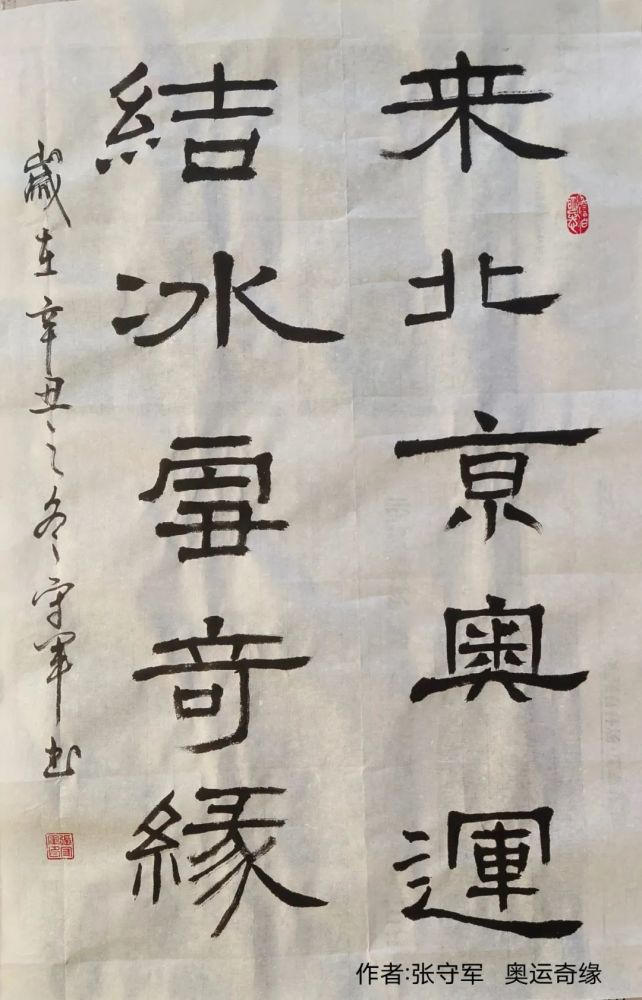 来北京奧運
結冰雪奇緣
歲在辛丑之冬守軍书
作者:张守军 奥运奇缘